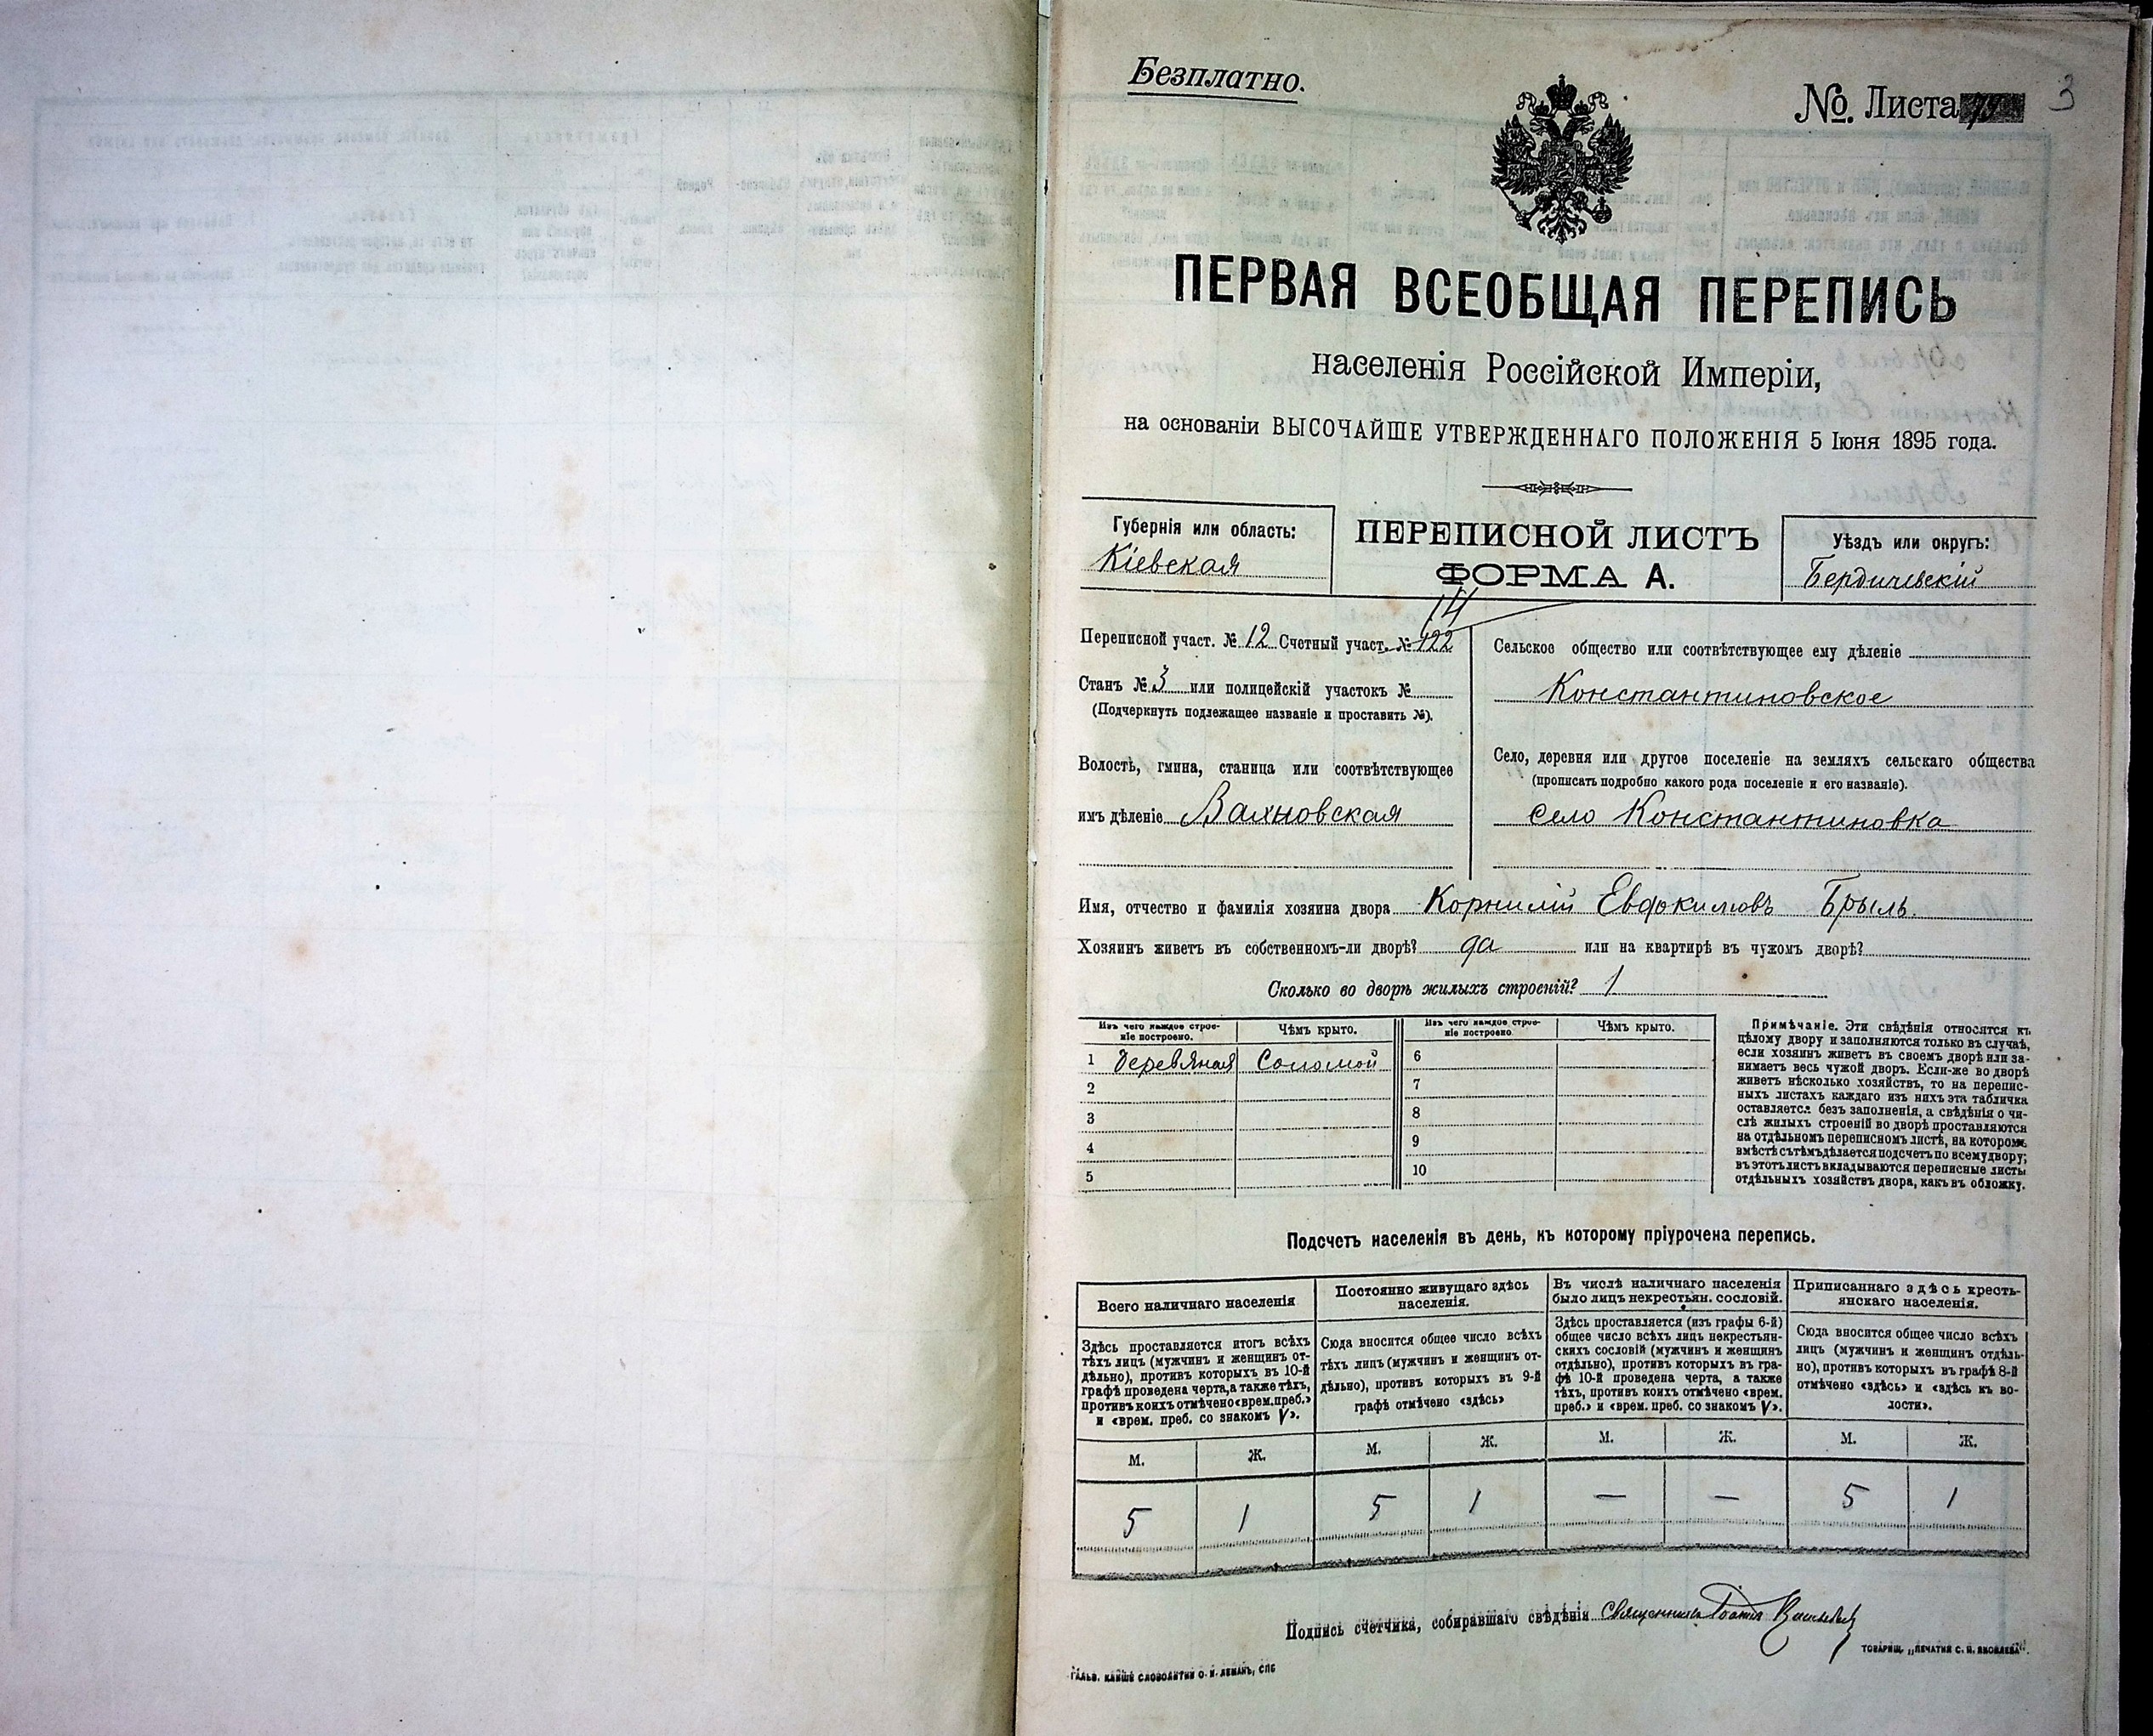 Безплатно.
№. Листа
3
ПЕРВАЯ ВСЕОБЩАЯ ПЕРЕПИСЬ
населенія Россійской Имперіи,
на основаніи ВЫСОЧАЙШЕ УТВЕРЖДЕННАГО ПОЛОЖЕНІЯ 5 Іюня 1895 года.
Губернія или область:
Кіевская
ПЕРЕПИСНОЙ ЛИСТЪ
ФОРМА А.
Уѣздъ или округъ:
Бердичевскій
14
Переписной участ. № 12 Счетный участ. № 122
Станъ № 3 или полицейскій участокъ №
(Подчеркнуть подлежащее названіе и проставить №).
Волость, гмина, станица или соотвѣтствующее
имъ дѣленіе Вахновская
Сельское общество или соотвѣтствующее ему дѣленіе
Константиновское
Село, деревня или другое поселеніе на земляхъ сельскаго общества
(прописать подробно какого рода поселеніе и его названіе).
село Константиновка
Имя, отчество и фамилія хозяина двора Корнилій Евдокимовъ Брыль.
Хозяинъ живетъ въ собственномъ-ли дворѣ? да или на квартирѣ въ чужомъ дворѣ?
Сколько во дворѣ жилыхъ строеній? 1
Изъ чего каждое строе-
ніе построено.
Чѣмъ крыто.
Изъ чего каждое строе-
ніе построено
Чѣмъ крыто.
1 деревяная Соломой 6
2 7
3 8
4 9
5 10
Примѣчаніе. Эти свѣдѣнія относятся къ
цѣлому двору и заполняются только въ случаѣ,
если хозяинъ живетъ въ своемъ дворѣ или за-
нимаетъ весь чужой дворъ. Если-же во дворѣ
живетъ нѣсколько хозяйствъ, то на перепис-
ныхъ листахъ каждаго изъ нихъ эта табличка
оставляется безъ заполненія, а свѣдѣнія о чи-
слѣ жилыхъ строеній во дворѣ проставляются
на отдѣльномъ переписномъ листѣ, на которомъ
вмѣстѣ съ тѣмъ дѣлается подсчетъ по всему двору;
въ этотъ листъ вкладываются переписные листы
отдѣльныхъ хозяйствъ двора, какъ въ обложку.
Подсчетъ населенія въ день, къ которому пріурочена перепись.
Всего наличнаго населенія
Здѣсь проставляется итогъ всѣхъ
тѣхъ лицъ (мужчинъ и женщинъ от-
дѣльно), противъ которыхъ въ 10-й
графѣ проведена черта, а также тѣхъ,
противъ коихъ отмѣчено «врем. преб.»
и «врем. преб. со знакомъ V».
Постоянно живущаго здѣсь
населенія.
Сюда вносится общее число всѣхъ
тѣхъ лицъ (мужчинъ и женщинъ от-
дѣльно), противъ которыхъ въ 9-й
графѣ отмѣчено «здѣсь»
Въ числѣ наличнаго населенія
было лицъ некрестьян. сословій.
Здѣсь проставляется (изъ графы 6-й)
общее число всѣхъ лицъ некрестьян-
скихъ сословій (мужчинъ и женщинъ
отдѣльно), противъ которыхъ въ гра-
фѣ 10-й проведена черта, а также
тѣхъ, противъ коихъ отмѣчено «врем.
преб.» и «врем. преб. со знакомъ V».
Приписаннаго здѣсь кресть-
янскаго населенія.
Сюда вносится общее число всѣхъ
лицъ (мужчинъ и женщинъ отдѣль-
но), противъ которыхъ въ графѣ 8-й
отмѣчено «здѣсь» и «здѣсь къ во-
лости».
М. Ж. М. Ж. М. Ж. М. Ж.
5 1 5 1 — — 5 1
Подпись счетчика, собиравшаго свѣдѣнія Священникъ Іоаннъ
ТОВАРИЩ. „ПЕЧАТНЯ С. П. ЯКОВЛЕВА“.
ГАЛЬВ. КЛИШЕ СЛОВОЛИТНИ О. И. ЛЕМАНЪ, СПБ